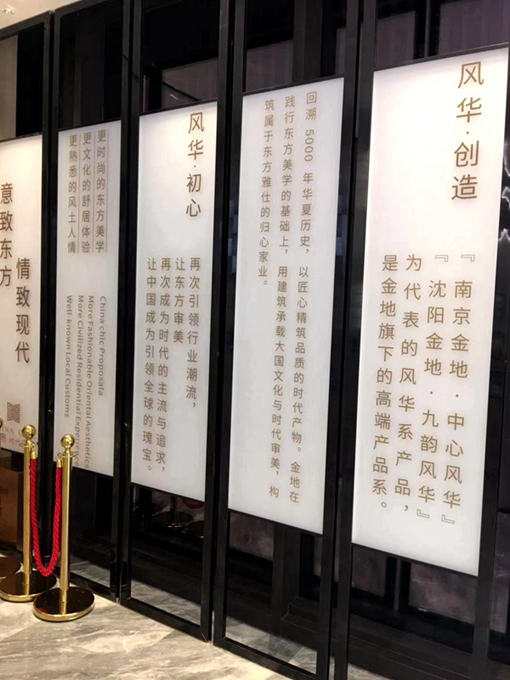 风华·创造
『南京金地·中心风华』
『沈阳金地·九韵风华』
为代表的风华系产品，
是金地旗下的高端产品系。
回溯 5000 年华夏历史，以匠心精筑品质的时代产物。金地在
践行东方美学的基础上，用建筑承载大国文化与时代审美，构
筑属于东方雅仕的归心家业。
风华·初心
再次引领行业潮流，
让东方审美
再次成为时代的主流与追求，
让中国成为引领全球的瑰宝。
更时尚的东方美学
更文化的舒居体验
更熟悉的风土人情
China chic Proposala
More Fashionable Oriental Aesthetics
More Civilized Residential Experience
Well-known Local Customs
意致东方
情致现代